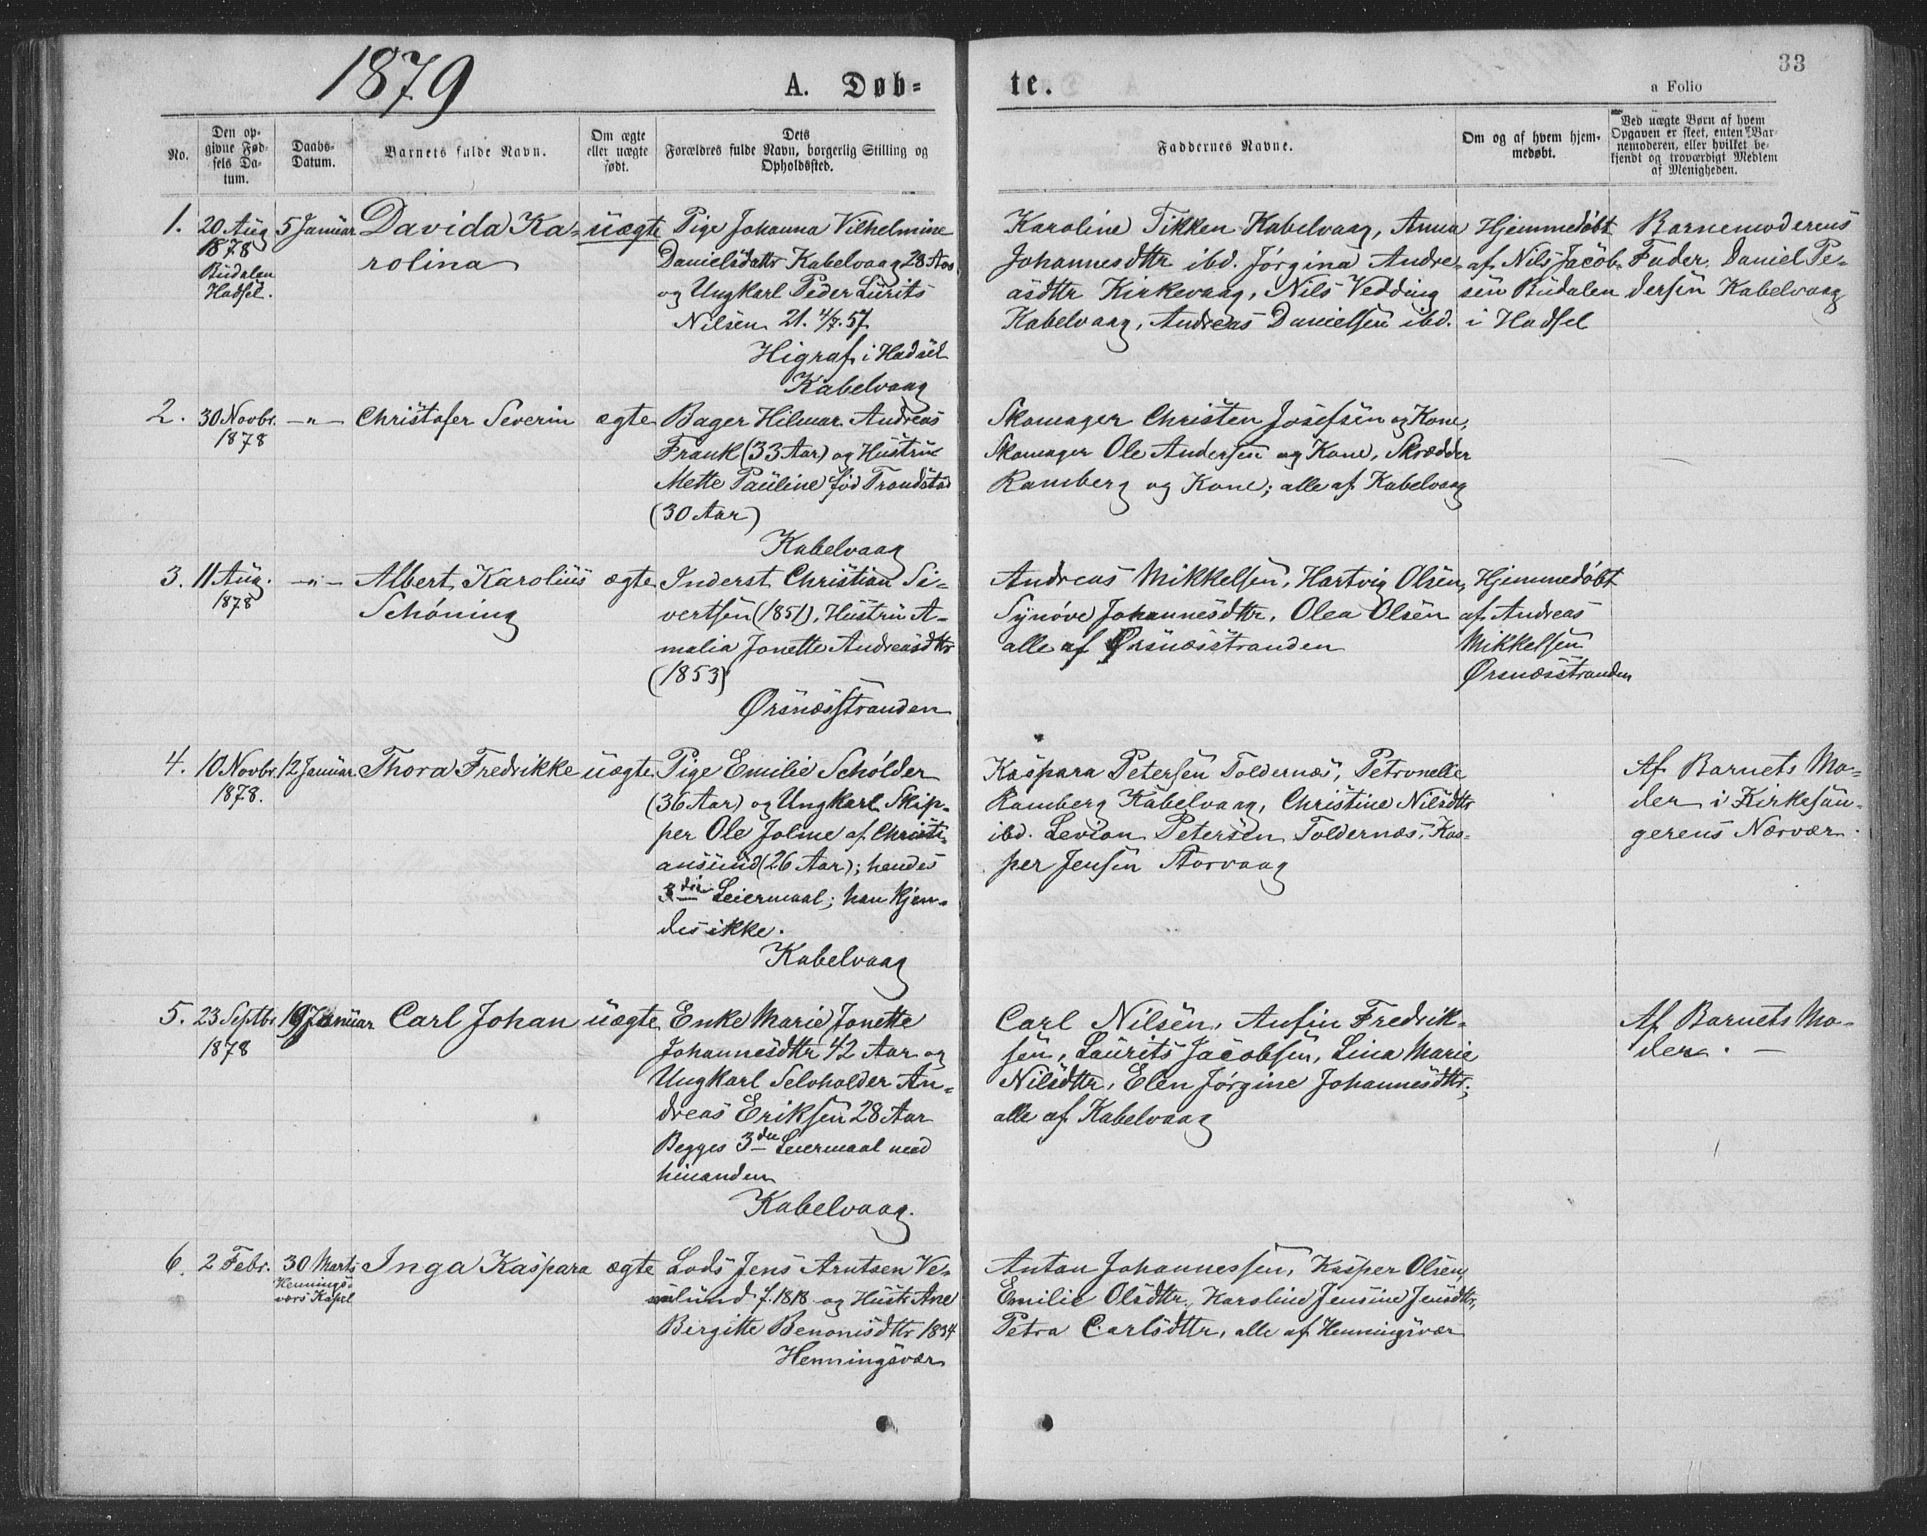 1879
A. Døb=
te.
33
a Folio
No.
Den op-
givne Fød-
sels Da-
tum.
Daabs-
Datum.
Barnets fulde Navn.
Om ægte
eller uægte
født.
Dets
Forældres fulde Navn, borgerlig Stilling og
Opholdssted.
Faddernes Navne.
Om og af hvem hjem-
medøbt.
Ved uægte Børn af hvem
Opgaven er skeet, enten Bar-
nemoderen, eller hvilket be-
kjendt og troværdigt Medlem
af Menigheden.
1.
20 Aug
1878
Budalen
Hadsel.
5 Januar
Davida Ka-
rolina
uægte
Pige Johanna Vilhelmine
Danielsdattr Kabelvaag 28 Aar
og Ungkarl Peder Lurits
Nilsen 21. 4/7.57
Higraf i Hadsel
Kabelvaag
Karoline Tikken Kabelvaag, Anna
Johannesdttr ibd. Jørgina Andre-
asdttr Kirkevaag, Nils Vedding
Kabelvaag, Andreas Danielsen ibd.
Hjemmedøbt
af Nils Jacob-
sen Budalen
i Hadsel
Barnemoderens
Fader Daniel Pe-
dersen Kabelvaag
2.
30 Novbr.
1878
—"—
Christofer Severin
ægte
Bager Hilmar Andreas
Frank (33 Aar) og Hustrue
Mette Pauline fød Trondstad
(30 Aar)
Kabelvaag
Skomager Christen Josefsen og Kone,
Skomager Ole Andersen og Kone, Skrædder
Ramberg og Kone; alle af Kabelvaag
3.
11 Aug.
1878
—"—
Albert Karolius
Schöning
ægte
Inderst Christian Si-
vertsen (1851), Hustru A-
malia Jonette Andreasdttr
(1853)
Ørsnæsstranden
Andreas Mikkelsen, Hartvig Olsen,
Synøve Johannesdttr, Olea Olsen
alle af Ørsnæsstranden
Hjemmedøbt
af Andreas
Mikkelsen
Ørsnæsstranden
4.
10 Novbr.
1878.
12 Januar
Thora Fredrikke
uægte
Pige Emilie Schölder
(36 Aar) og Ungkarl Skip-
per Ole Jolme af Christi-
ansund (26 Aar); hendes
3die Leiermaal; han kjen-
des ikke.
Kabelvaag
Kaspara Petersen Toldernæs, Petronelle
Ramberg Kabelvaag, Christine Nilsdttr
ibd. Levion Petersen Toldernæs, Kas-
per Jensen Storvaag
Af Barnets Mo-
der i Kirkesan-
gerens Nærvær.
5.
23 Septbr.
1878
19 Januar
Carl Johan
uægte
Enke Marie Jonette
Johannesdttr 42 Aar og
Ungkarl Selvholder An-
dreas Eriksen 28 Aar
Begges 3die Leiermaal med
hinanden
Kabelvaag.
Carl Nilsen, Anfin Fredrik-
sen, Laurits Jacobsen, Lina Marie
Nilsdttr, Elen Jørgine Johannesdttr;
alle af Kabelvaag
Af Barnets Mo-
der. —
6.
2 Febr.
30 Marts
Hennings-
værs Kapel
Inga Kaspara
ægte
Lods Jens Arntsen Ve-
lund f. 1818 og Hustr Ane
Birgitte Benonisdttr 1834
Henningsvær
Anton Johannessen, Kasper Olsen,
Emilie Olsdttr, Karoline Jensine Jensdttr,
Petra Carlsdttr, alle af Henningsvær